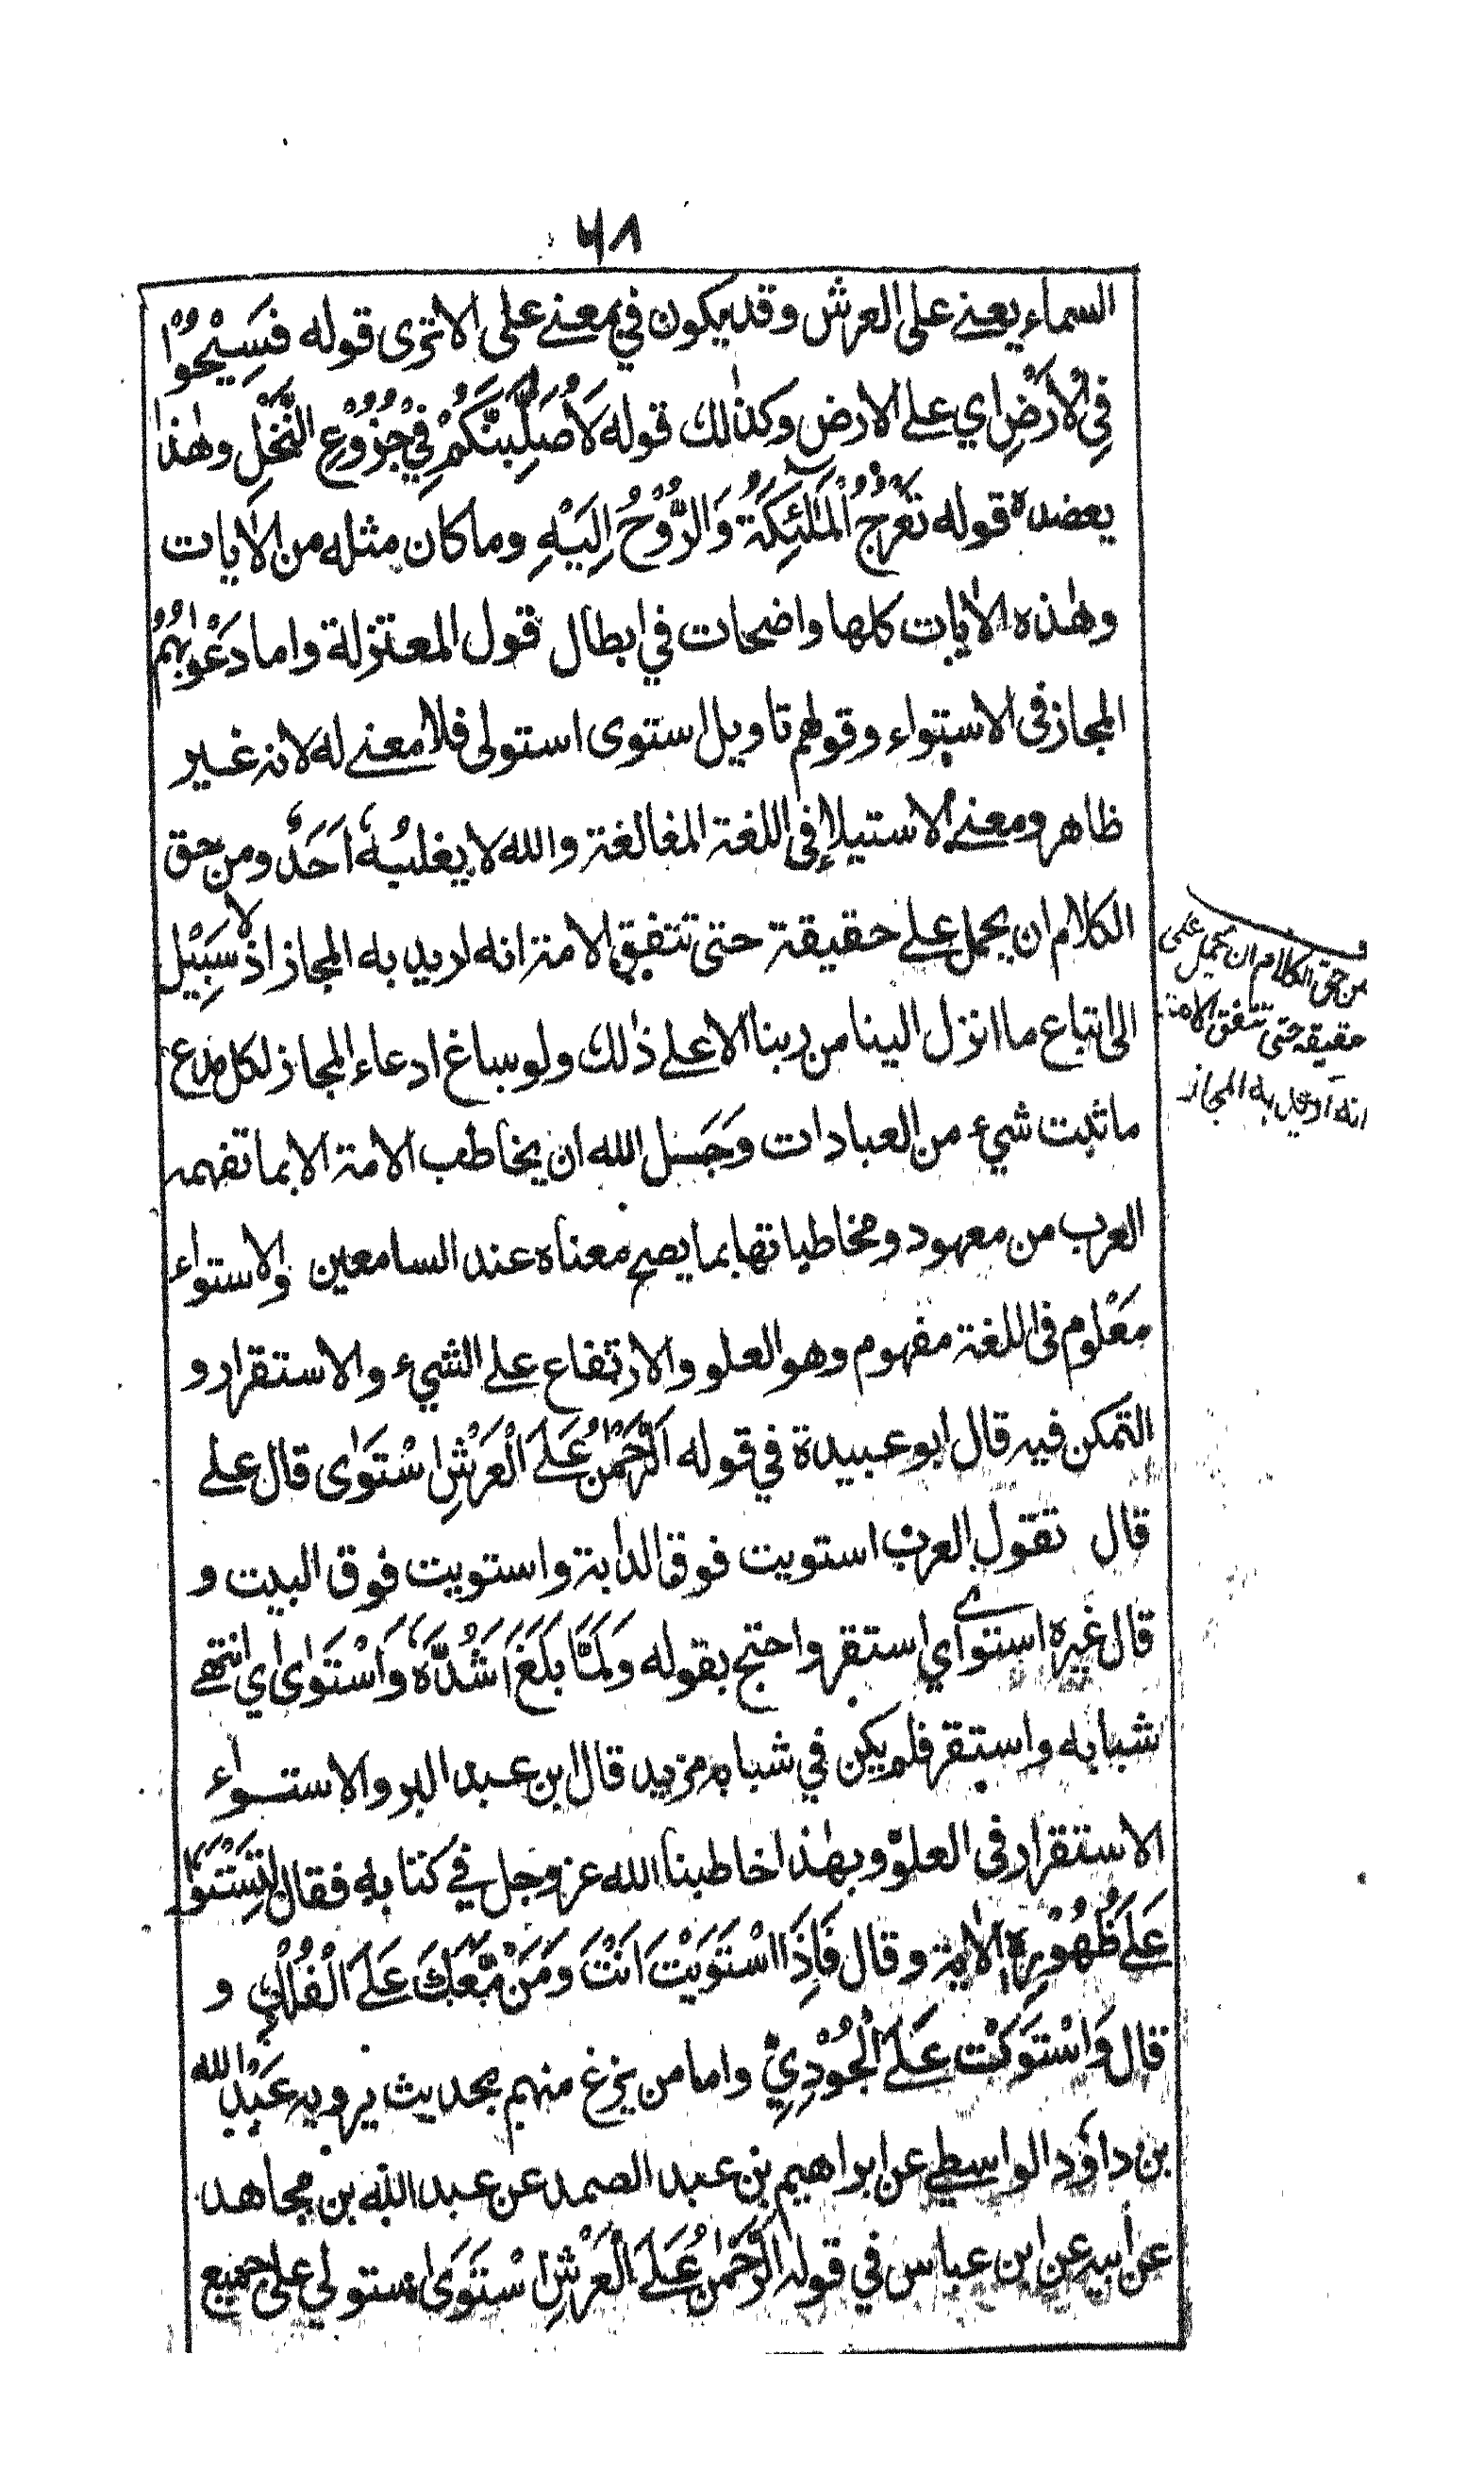 ٦٨
السماء يعني على العرش وقد يكون في بمعنى على الا ترى قوله فَسِيْحُوْا
فِي الْأَرْضِ اي على الارض وكذٰلك قوله لَأُصَلِّبَنَّكُمْ فِيْ جُزُوْعِ النَّخْلِ وهٰذا
يعضده قوله تَعْرُجُ الْمَلٰئِكَةُ وَالرُّوْحُ اِلَيْهِ وما كان مثله من الاٰيات
وهٰذه الاٰيات كلها واضحات في ابطال قول المعتزلة واما دَعْوٰىهُمْ
المجاز فى الاستواء وقولهم تاويل استوى استولى فلا معنى له لانه غير
ظاهر ومعنى الاستيلاء فى اللغة المغالغة والله لا يغلبُهٗ اَحَدٌ ومن حق
الكلام ان يحمل على حقيقة حتى تتفق الامة انه اريد به المجاز اذ لا سَبِيْل
الى اتباع ما انزل الينا من ربنا الا على ذٰلك ولو ساغ ادعاء المجاز لكل مدع
ما ثبت شيء من العبادات وَجَـل الله ان يخاطب الامة الا بما تفهمه
العرب من معهود ومخاطباتها بما يصح معناه عند السامعين والاستواء
مَعْلوم فى اللغة مفهوم وهو العلو والارتفاع على الشيء والاستقرار و
التمكن فيه قال ابو عبيدة في قوله اَلرَّحْمٰنُ عَلَى الْعَرْشِ اسْتَوٰى قال على
قال تقول العرب استويت فوق الدابة واستويت فوق البيت و
قال غيره استوى اي استقر واحتج بقوله وَلَمَّا بَلَغَ اَشُدَّهٗ وَاسْتَوٰى اي انتهى
شبابه واستقر فلم يكن في شبابه مزيد قال ابن عبد البر والاستواء
الاستقرار فى العلوّ وبهٰذا خاطبنا الله عز وجل في كتابه فقال لِتَسْتَوٗا
عَلىٰ ظُهُوْرِهِ الاٰية وقال فَاِذَا اسْتَوَيْتَ اَنْتَ وَمَنْ مَّعَكَ عَلَى الْفُلْكِ و
قال وَاسْتَوَتْ عَلَى الْجُوْدِيِّ واما من يزغ منهم بحديث يرويه عَبْدُ الله
بن داوٗد الواسطي عن ابراهيم بن عبد الصمد عن عبد الله بن مجاهد
عن أبيه عن ابن عباس في قوله الرَّحْمٰنُ عَلَى الْعَرْشِ اسْتَوَى استولى على جميع
من حق الكلام ان يحمل على
حقيقه حتى تتفق الامة
انه اريد به المجاز